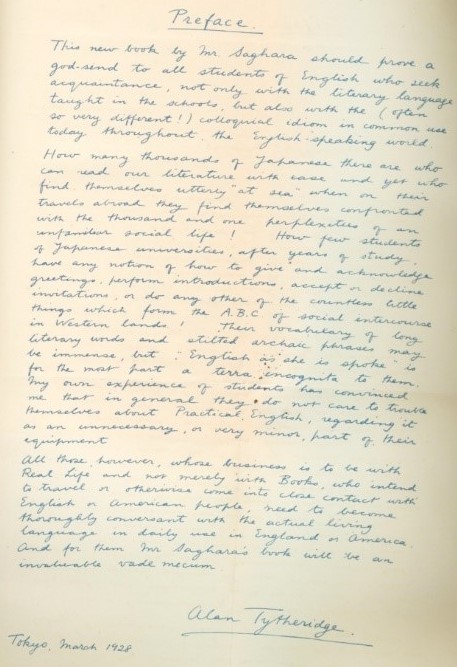 Preface.
This new book by Mr. Saghara should prove a
god-send to all students of English who seek
acquaintance, not only with the literary language
taught in the schools, but also with the (often
so very different!) colloquial idiom in common use
today throughout the English-speaking world.
How many thousands of Japanese there are who
can read our literature with ease and yet who
find themselves utterly "at sea" when on their
travels abroad they find themselves confronted
with the thousand and one perplexities of an
unfamiliar social life! How few students
of Japanese universities, after years of study,
have any notion of how to give and acknowledge
greetings, perform introductions, accept or decline
invitations, or do any other of the countless little
things which form the A.B.C. of social intercourse
in Western lands! Their vocabulary of long
literary words and stilted archaic phrases may
be immense, but "English as she is spoke" is
for the most part a terra incognita to them.
My own experience of students has convinced
me that in general they do not care to trouble
themselves about Practical English, regarding it
as an unnecessary, or very minor, part of their
equipment
All those, however, whose business is to be with
Real Life and not merely with Books, who intend
to travel or otherwise come into close contact with
English or American people, need to become
thoroughly conversant with the actual living
language in daily use in England or America.
And for them Mr Saghara's book will be an
invaluable vade mecum
Alan Tytheridge.
Tokyo, March 1928